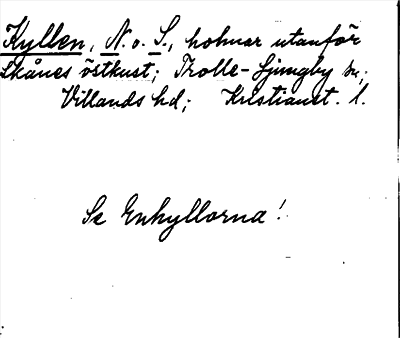 Kyllen, N. o. S., holmar utanför
Skånes östkust; Trolle-Ljungby sn;
Villands hd; Kristianst. l.
Se Enhyllorna!